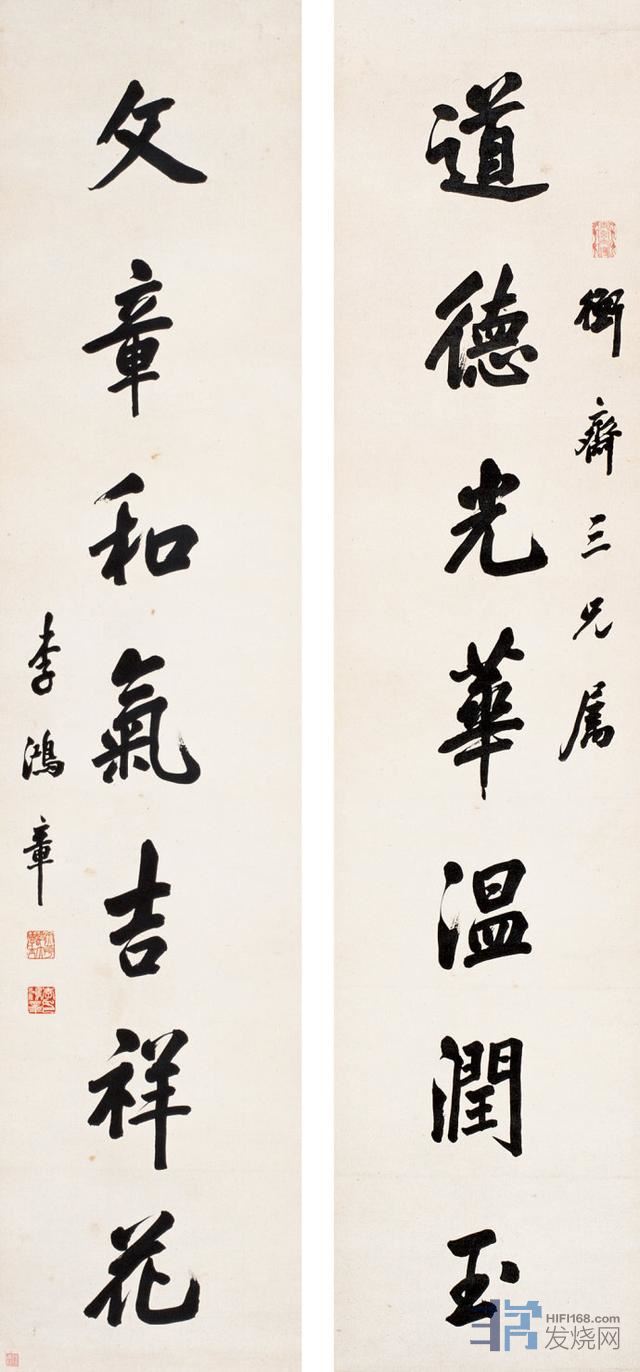 衡齋三兄属
道德光華温潤玉
文章和氣吉祥花
李鴻章
HIFI168.com
发烧网